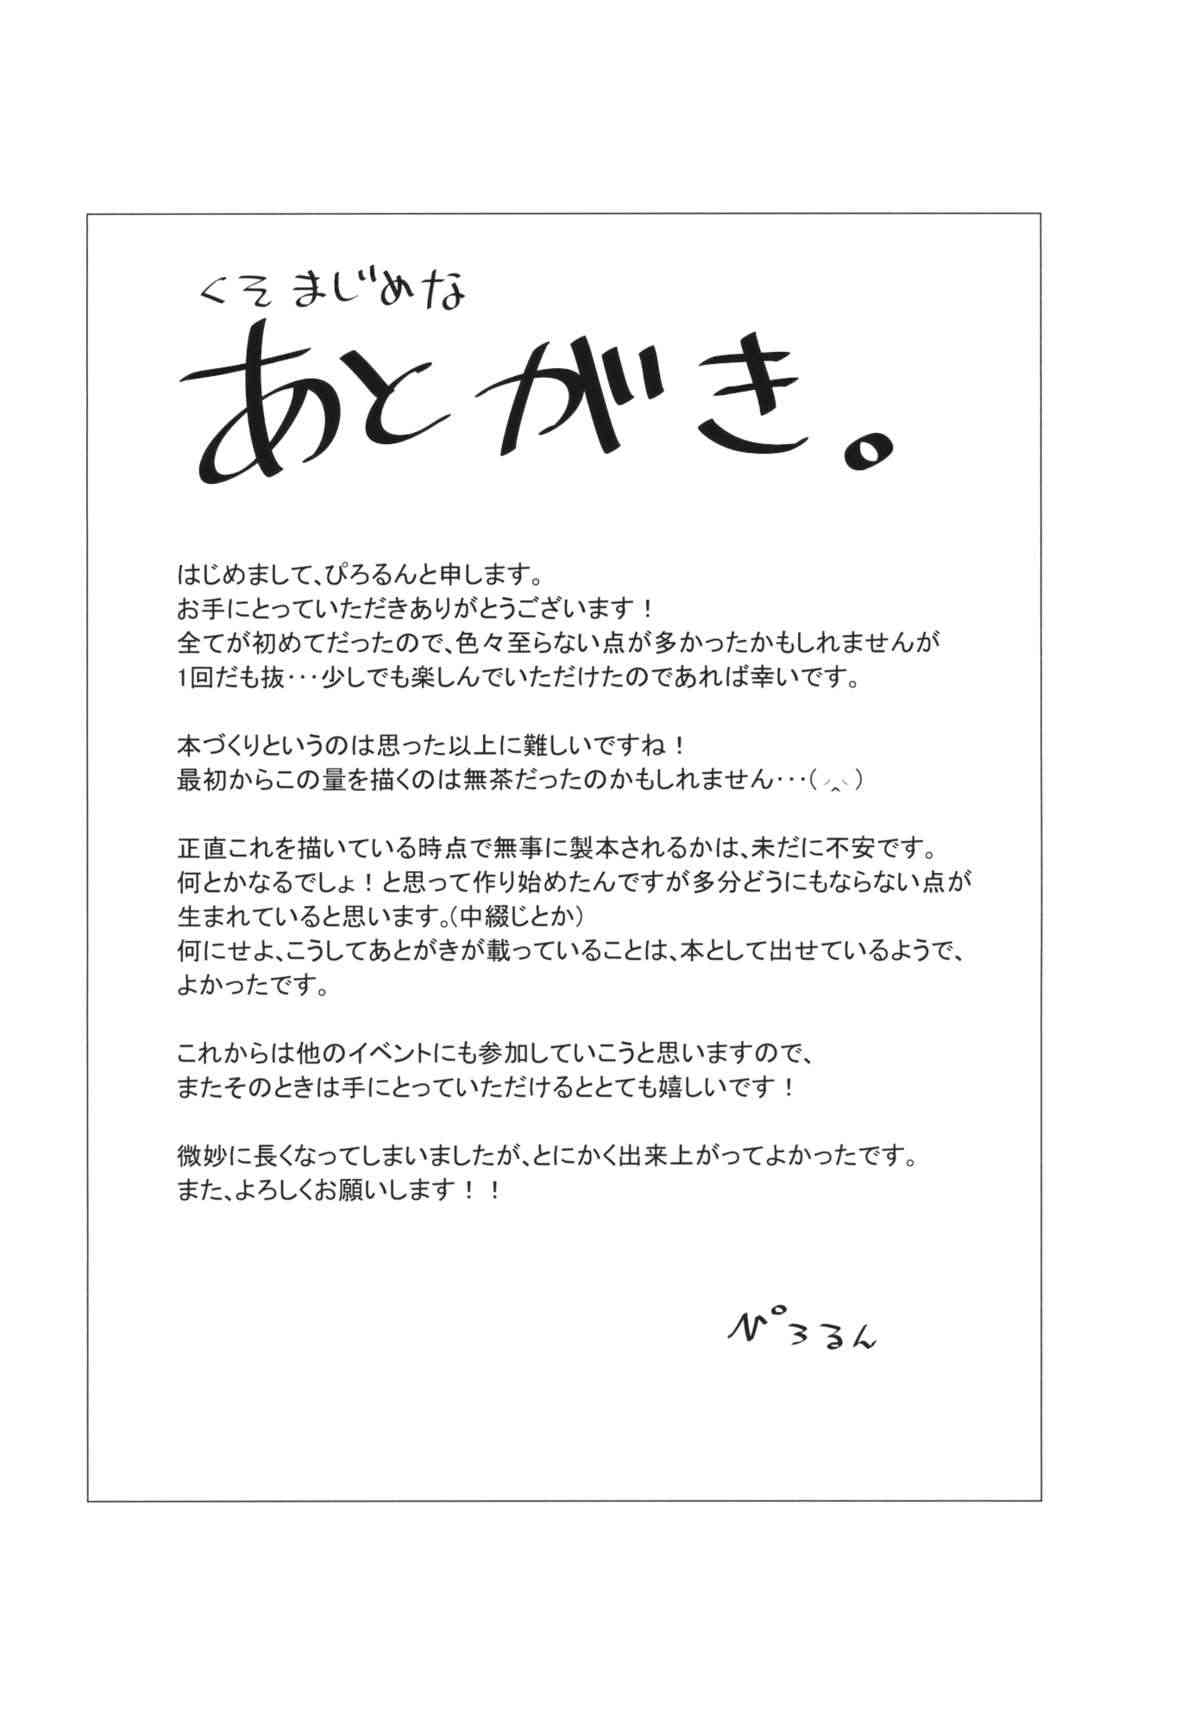 くそまじめな
あとがき。
はじめまして、ぴろるんと申します。
お手にとっていただきありがとうございます！
全てが初めてだったので、色々至らない点が多かったかもしれませんが
1回だも抜・・・少しでも楽しんでいただけたのであれば幸いです。
本づくりというのは思った以上に難しいですね！
最初からこの量を描くのは無茶だったのかもしれません・・・( ◞‸◟ )
正直これを描いている時点で無事に製本されるかは、未だに不安です。
何とかなるでしょ！と思って作り始めたんですが多分どうにもならない点が
生まれていると思います。(中綴じとか)
何にせよ、こうしてあとがきが載っていることは、本として出せているようで、
よかったです。
これからは他のイベントにも参加していこうと思いますので、
またそのときは手にとっていただけるととても嬉しいです！
微妙に長くなってしまいましたが、とにかく出来上がってよかったです。
また、よろしくお願いします！！
ぴろるん